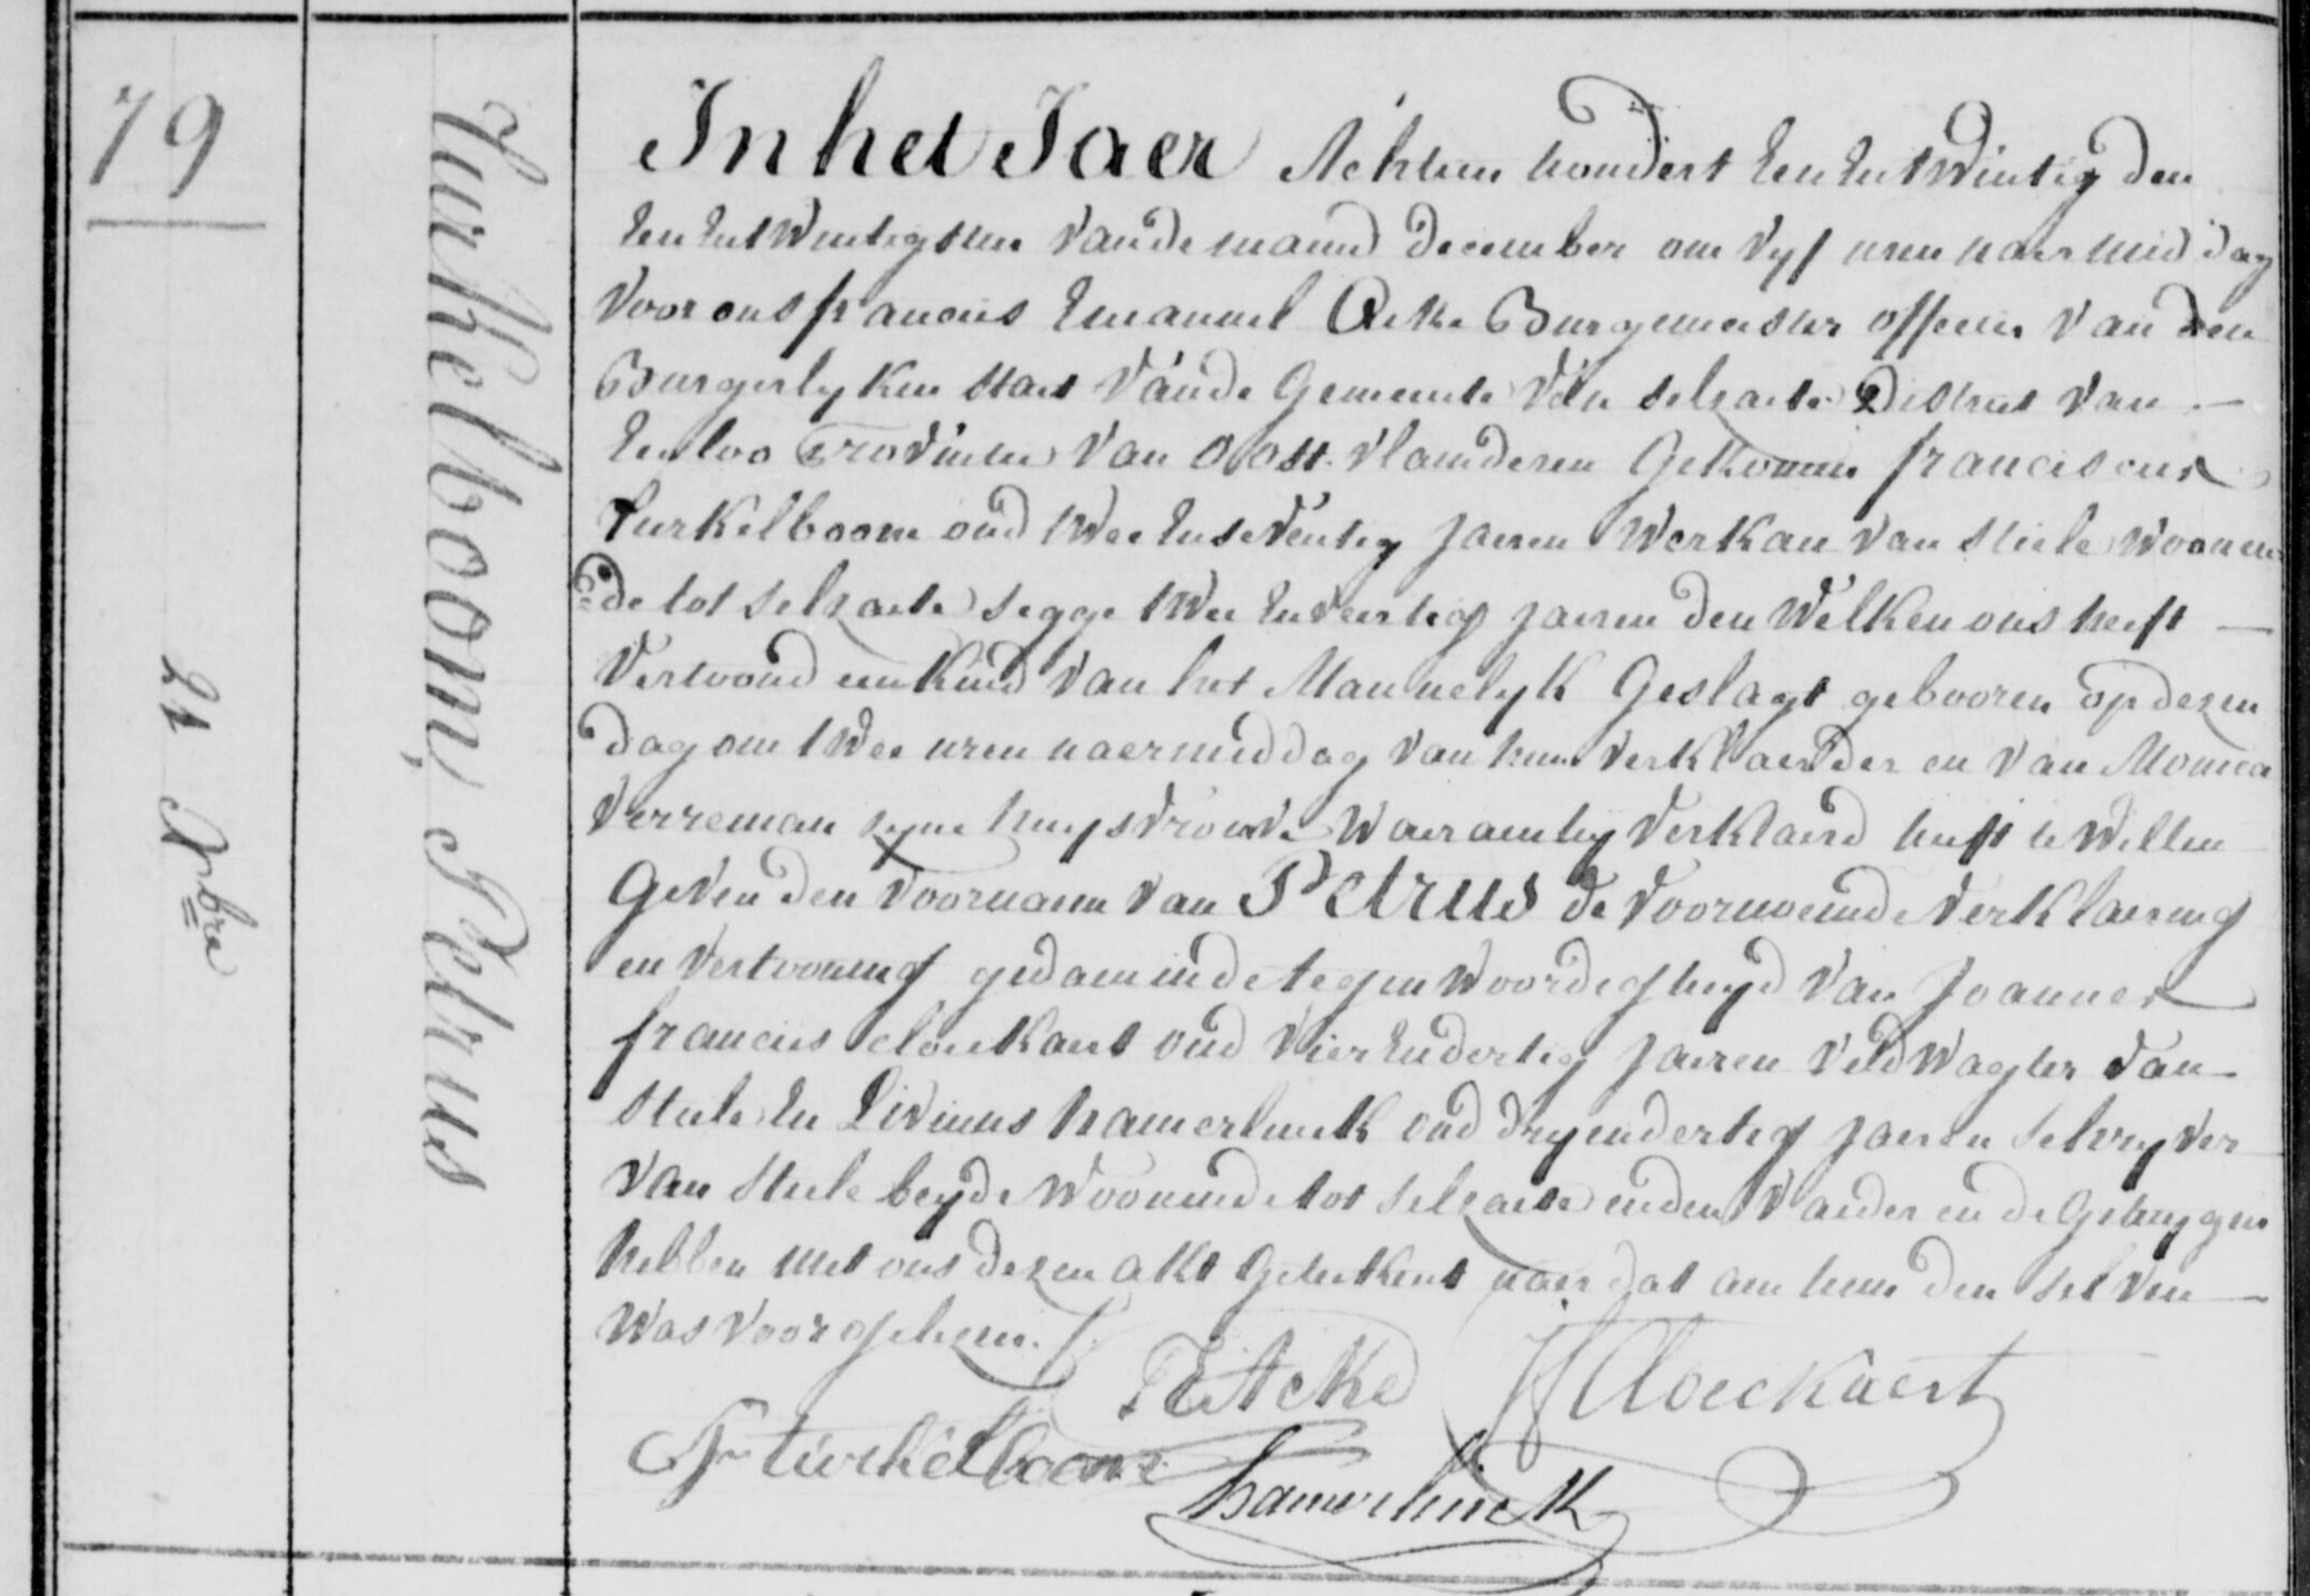 79
Turkelboom, Petrus
21 Xbre
In het Jaer Achtien hondert Een Entwintig den
Een Entwintigsten van de maand december om vyf uren naer middag
Voor ons francies Emanuel Acke Burgmeester officier van den
Burgerlyken staet Van de Gemeente Van selzaete District van —
Eecloo Provincie Van Oost-Vlaenderen Gekomen franciscus
Turkelboom oud twee Enseventig Jaeren Werkman van stiele woonen
de tot selzaete segge twee Enveertig jaeren den Welken ons heeft —
Vertoond een kind van het Mannelyk Geslagt gebooren op dezen
dag om twee uren naermiddag van hem verklaerder en van Monica
Verreman zyne huysvrouwe waer aen hy Verklaerd heeft te willen
Geven den Voornaem van Petrus de voornoemde verklaering
en Vertooning gedaen in de tegenwoordigheyd van Joannes
francies Cloeckaert oud Vier Endertig Jaeren Veldwagter van
stiele En Livinus hamerlinck oud dryendertig Jaeren schryver
van stiele beyde woonende tot selzaete en den Vaeder en de Getuygen
hebben met ons dezen akt Geteekent naer dat aen hun den selven —
was voorgelezen.
FEAcke JFCloeckaert
Fr turkelboom
L. hamerlinck